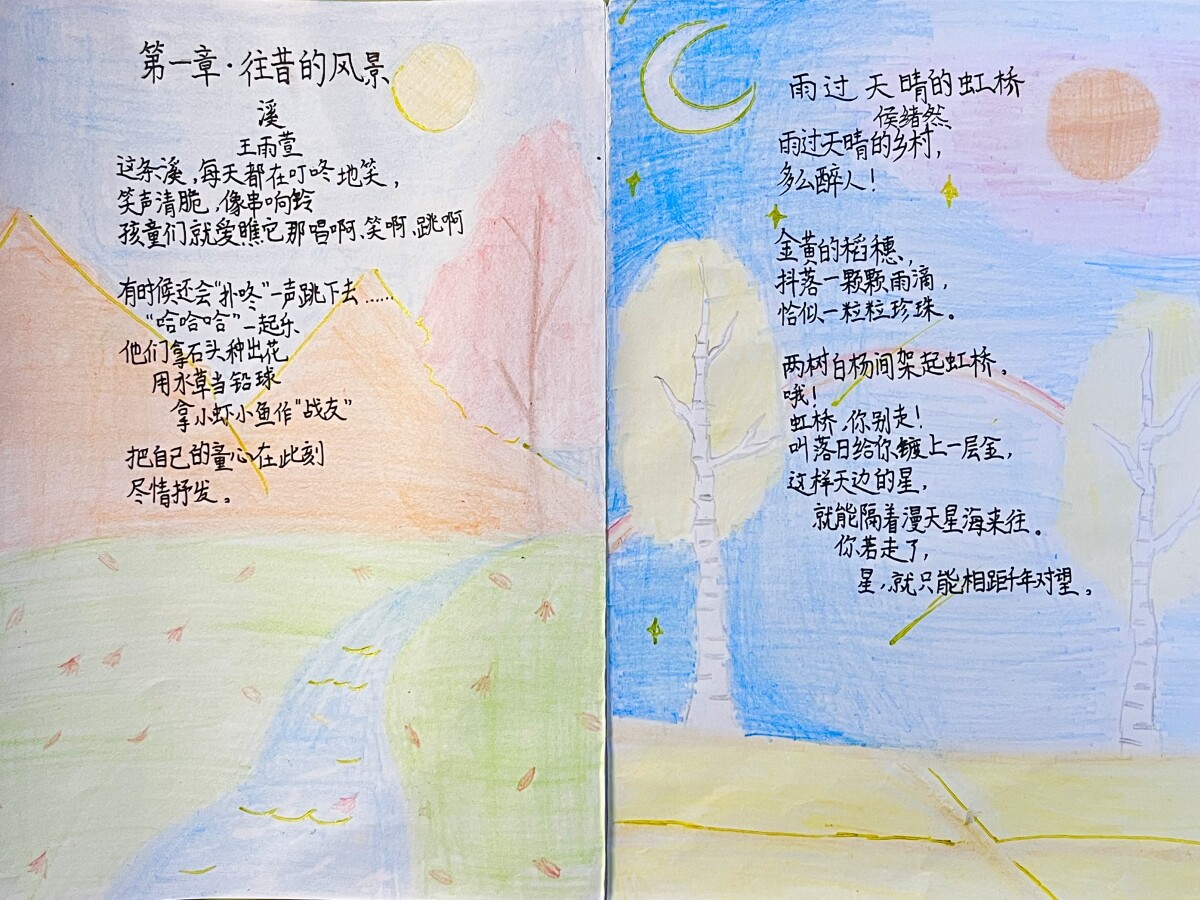 第一章·往昔的风景
溪
王雨萱
这条溪,每天都在叮咚地笑,
笑声清脆,像串响铃
孩童们就爱瞧它那唱啊、笑啊、跳啊
有时候还会“扑咚”一声跳下去……
“哈哈哈”一起乐
他们拿石头种出花
用水草当铅球
拿小虾小鱼作“战友”
把自己的童心在此刻
尽情抒发。
雨过天晴的虹桥
侯绪然
雨过天晴的乡村,
多么醉人!
金黄的稻穗,
抖落一颗颗雨滴,
恰似一粒粒珍珠。
两树白杨间架起虹桥。
哦!
虹桥,你别走!
叫落日给你镀上一层金,
这样天边的星,
就能隔着漫天星海来往。
你若走了,
星,就只能相距千年对望。